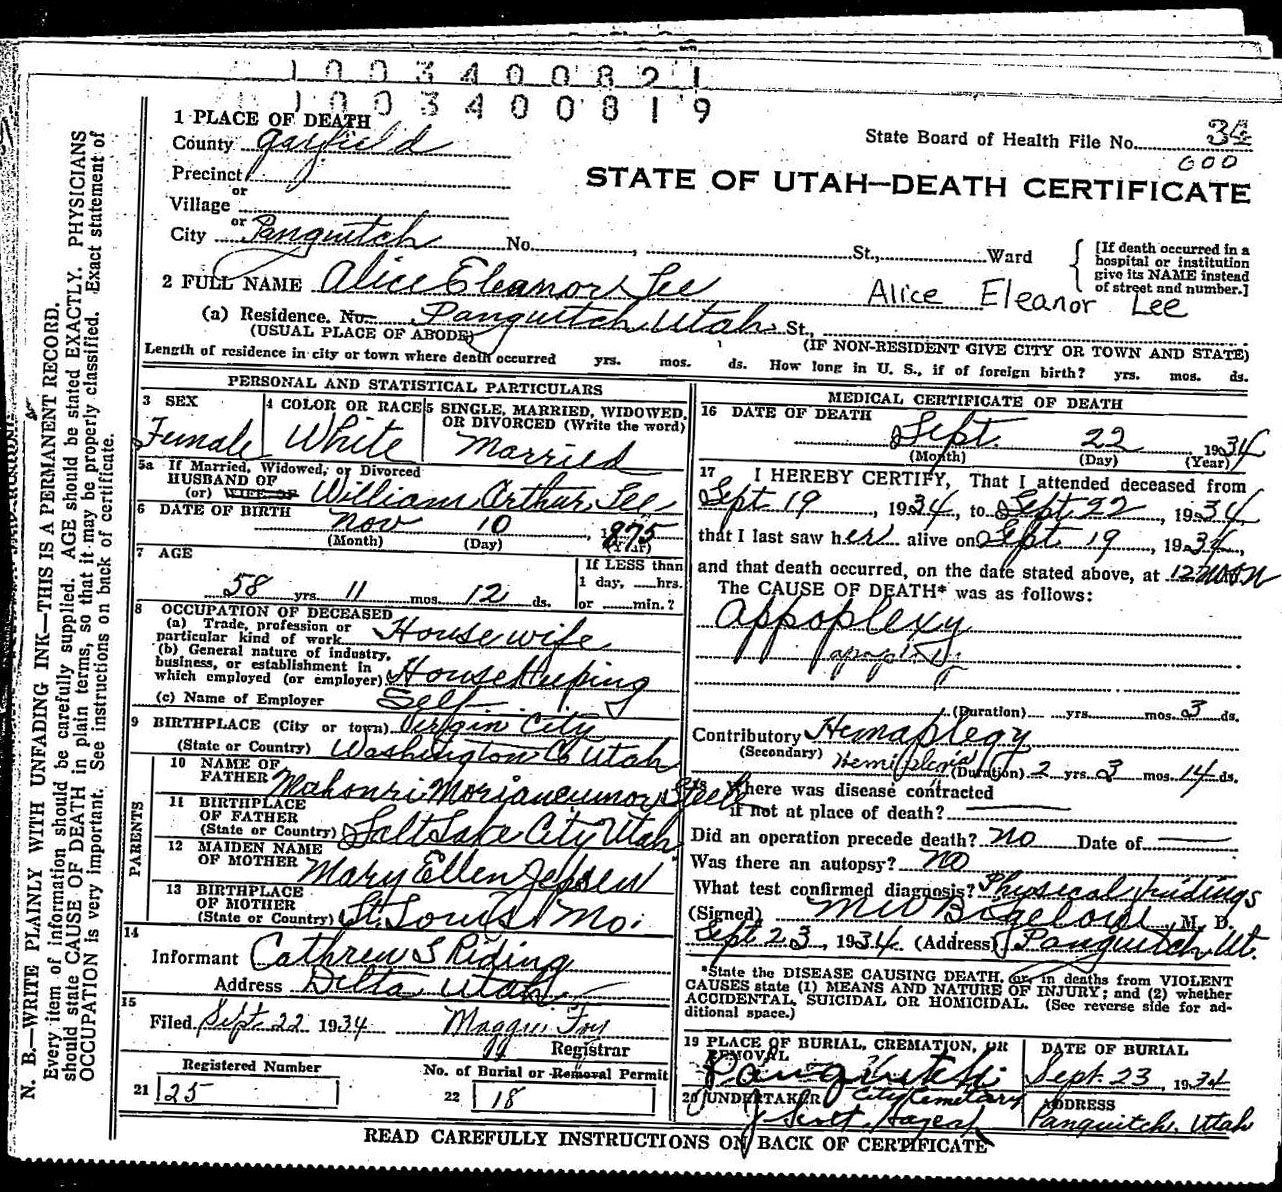 1003400821
1003400819
1 PLACE OF DEATH
County Garfield
State Board of Health File No. 34
000
Precinct
or
Village
or
City Panguitch No. , St., Ward
STATE OF UTAH—DEATH CERTIFICATE
[If death occurred in a
hospital or institution
give its NAME instead
of street and number.]
2 FULL NAME Alice Eleanor Lee Alice Eleanor Lee
(a) Residence. No. Panguitch, Utah St.,
(USUAL PLACE OF ABODE) (IF NON-RESIDENT GIVE CITY OR TOWN AND STATE)
Length of residence in city or town where death occurred yrs. mos. ds. How long in U. S., if of foreign birth? yrs. mos. ds.
PERSONAL AND STATISTICAL PARTICULARS
3 SEX
Female
4 COLOR OR RACE
White
5 SINGLE, MARRIED, WIDOWED,
OR DIVORCED (Write the word)
Married
5a If Married, Widowed, or Divorced
HUSBAND OF
(or) WIFE OF William Arthur Lee
6 DATE OF BIRTH Nov 10, 1875
(Month) (Day) (Year)
7 AGE
58 yrs. 11 mos. 12 ds.
If LESS than
1 day, hrs.
or min.?
8 OCCUPATION OF DECEASED
(a) Trade, profession or
particular kind of work Housewife
(b) General nature of industry,
business, or establishment in
which employed (or employer) Housekeeping
(c) Name of Employer Self
9 BIRTHPLACE (City or town) Virgin City
(State or Country) Washington Co Utah
PARENTS
10 NAME OF
FATHER Mahonri Moriancumor Steele
11 BIRTHPLACE
OF FATHER
(State or Country) Salt Lake City Utah
12 MAIDEN NAME
OF MOTHER Mary Ellen Jepsen
13 BIRTHPLACE
OF MOTHER
(State or Country) St. Louis, Mo.
14
Informant Cathrew S Riding
Address Delta Utah
15
Filed Sept. 22 1934 Maggie Foy
Registrar
Registered Number
21 125
No. of Burial or Removal Permit
22 18
MEDICAL CERTIFICATE OF DEATH
16 DATE OF DEATH
Sept. 22 1934
(Month) (Day) (Year)
17 I HEREBY CERTIFY, That I attended deceased from
Sept 19, 1934, to Sept 22, 1934
that I last saw her alive on Sept. 19, 1934,
and that death occurred, on the date stated above, at 12 noon
The CAUSE OF DEATH* was as follows:
Appoplexy
apoplexy
(Duration) yrs. mos. 3 ds.
Contributory Hemaplegy
(Secondary) Hemiplegia (Duration) 2 yrs. 3 mos. 14 ds.
18 Where was disease contracted
if not at place of death?
Did an operation precede death? No Date of
Was there an autopsy? no
What test confirmed diagnosis? Physical findings
(Signed) M W Bigelow M. D.
Sept 23, 1934. (Address) Panguitch Ut.
*State the DISEASE CAUSING DEATH, or, in deaths from VIOLENT
CAUSES state (1) MEANS AND NATURE OF INJURY; and (2) whether
ACCIDENTAL, SUICIDAL OR HOMICIDAL. (See reverse side for ad-
ditional space.)
19 PLACE OF BURIAL, CREMATION, OR
REMOVAL
Panguitch
City Cemetary
DATE OF BURIAL
Sept. 23, 1934
20 UNDERTAKER
J Scott
ADDRESS
Panguitch, Utah
READ CAREFULLY INSTRUCTIONS ON BACK OF CERTIFICATE
N. B.—WRITE PLAINLY WITH UNFADING INK—THIS IS A PERMANENT RECORD.
Every item of information should be carefully supplied. AGE should be stated EXACTLY. PHYSICIANS
should state CAUSE OF DEATH in plain terms, so that it may be properly classified. Exact statement of
OCCUPATION is very important. See instructions on back of certificate.